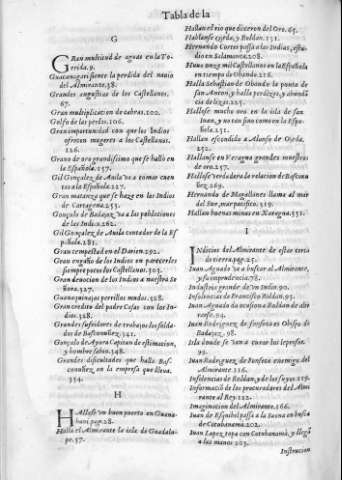 Tabla de la
G
GRan multitud de aguas en la To-
rrida.9.
Guacanagari siente la perdida del nauio
del Almirante.38.
Grandes angustias de los Castellanos.
67.
Gran multiplicacion de cabras.102.
Golfo de las perlas.106.
Gran importunidad con que los Indios
ofrecen mugeres a los Castellanos.
126.
Grano de oro grandissimo que se hallò en
la Española.157.
Gil Gonçalez de Auila va a tomar cuen
tas a la Española.217.
Gran matança que se haze en los Indios
de Cartagena.251.
Gonçalo de Badajoz, va a las poblaciones
de los Indios.262.
Gil Gonçalez de Auila contador de la Es
pañola.281.
Gran tempestad en el Darien.292.
Gran engaño de los Indios en parecerles
siempre pocos los Castellanos.303.
Gran deuocion de los Indios a nuestra Se
ñora.327.
Guaniquinajes perrillos mudos.328.
Gran credito del padre Casas con los In-
dios.328.
Grandes sufridores de trabajos los solda-
dos de Basco nuñez.341.
Gonçalo de Ayora Capitan de estimacion,
y hombre sabio.348.
Grandes dificultades que halla Bas-
co nuñez en la empresa que lleua.
354.
H
HAllose vn buen puerto en Guana-
hani pag.28.
Halla el Almirante la isla de Guadalu-
pe.57.
Hallan el rio que dixeron del Oro.65.
Hablanse Ojeda, y Roldan.131.
Hernando Cortes passò a las Indias, estu-
dio en Salamanca.208.
Huuo onze mil Castellanos en la Española
en tiempo de Obando.216.
Halla Sebastian de Obando la punta de
san Anton, y halla perdizes, y abundã
cia de lizas.225.
Hallose mucho oro en la isla de san
Iuan, y no tan fino como en la Espa-
ñola.231.
Hallan escondido a Alonso de Ojeda.
252.
Hallanse en Veragua grandes muestras
de oro.257.
Hallose verdadera la relacion de Basco nu
ñez.269.
Hernando de Magallanes llama al mar
del Sur, mar pacifico.319.
Hallan buenas minas en Xaragua.331.
I
INdicios del Almirante de estar cerca
de tierra.pag.25.
Iuan Aguado va a buscar al Almirante,
y su imprudencia.78.
Industria grande de vn Indio.90.
Insolencias de Francisco Roldan.93.
Iuan Aguado da ocasion a Roldan de alte
rarse.94.
Iuan Rodriguez de Fonseca es Obispo de
Badajoz. 98.
Isla donde se van a curar los leprosos.
99.
Iuan Rodriguez de Fonseca enemigo del
Almirante.116.
Insolencias de Roldan, y de los suyos.119.
Informacion de los procuradores del Almi
rante al Rey.122.
Imaginacion del Almirante.166.
Iuan de Esquibel passa a la Saona en busca
de Cotubanama.202.
Iuan Lopez, topa con Cotubanamà, y llegò
a las manos 203.
Instruccion